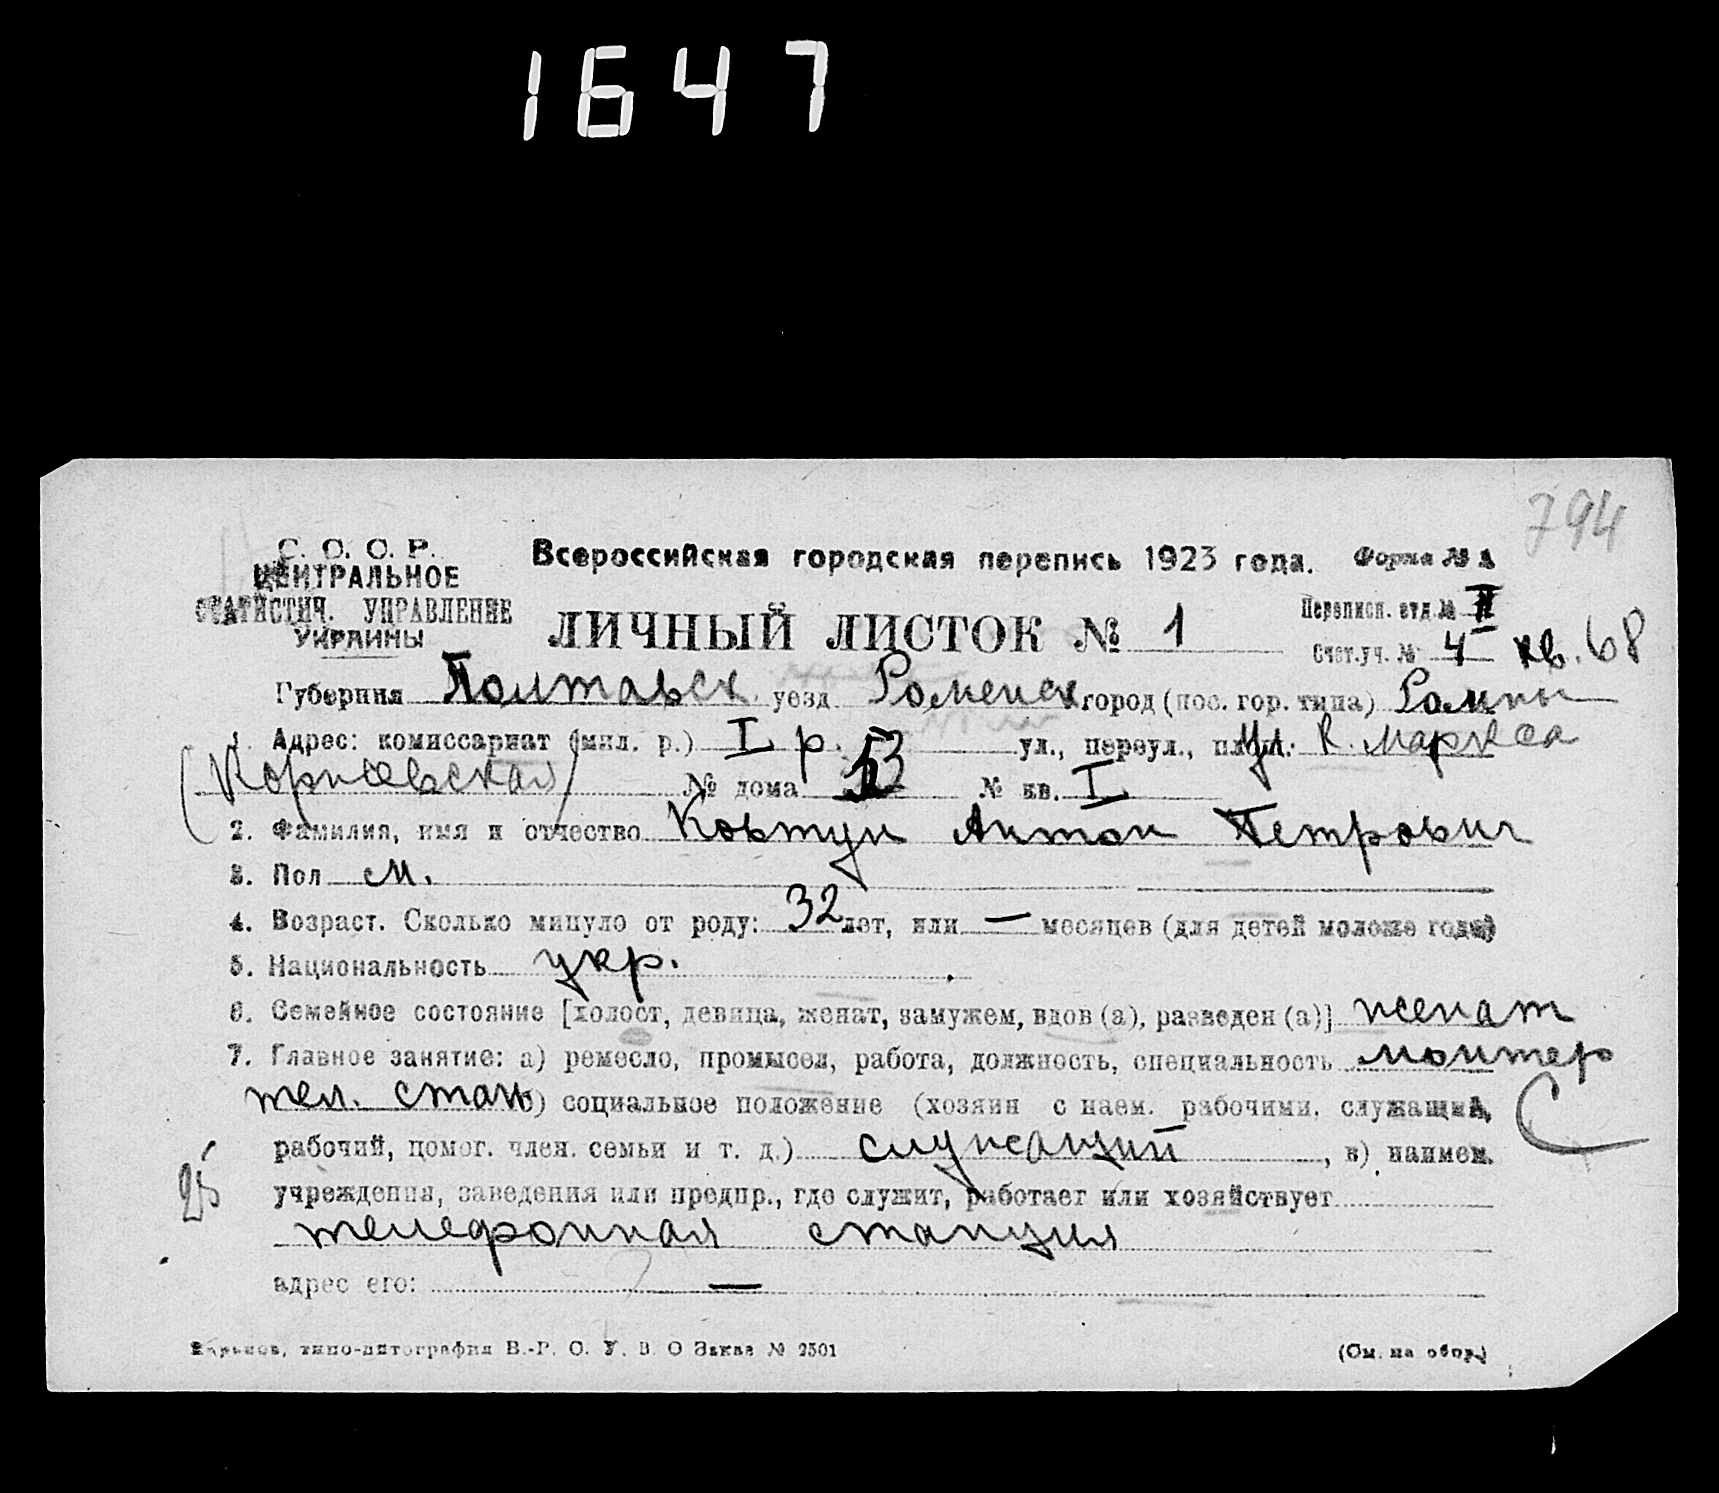 1647
794
С. С. С. Р.
ЦЕНТРАЛЬНОЕ
СТАТИСТИЧ. УПРАВЛЕНИЕ
УКРАИНЫ
Всероссийская городская перепись 1923 года. Форма № А
ЛИЧНЫЙ ЛИСТОК № 1
Переписн. отд. № II
Счет. уч. № 4 кв. 68
Губерния Полтавск. уезд Роменск город (пос. гор. типа) Ромны
1. Адрес: комиссариат (мил. р.) I р. ул., переул., площ. ул. К. Маркса
№ дома № кв. I
2. Фамилия, имя и отчество Ковтун Антон Петрович
3. Пол м.
4. Возраст. Сколько минуло от роду: 32 лет, или — месяцев (для детей моложе года)
5. Национальность укр.
6. Семейное состояние [холост, девица, женат, замужем, вдов (а), разведен (а)] женат
7. Главное занятие: а) ремесло, промысел, работа, должность, специальность монтер
тел. стан. б) социальное положение (хозяин с наем. рабочими, служащий,
рабочий, помог. член. семьи и т. д.) служащий, в) наимен.
25 учреждения, заведения или предпр., где служит, работает или хозяйствует
телефонная станция
адрес его: —
Харьков, типо-литография В.-Р. С. У. В. О Заказ № 2501 (См. на обор.)